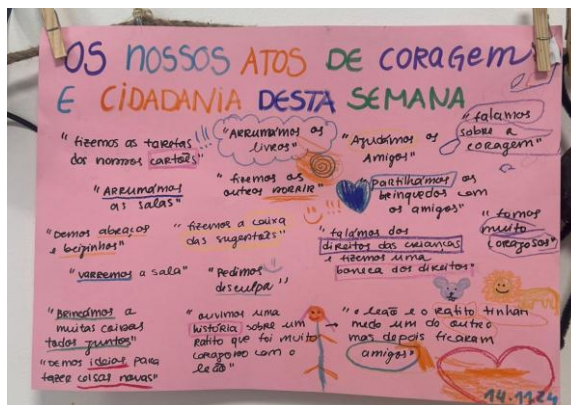 OS NOSSOS ATOS DE CORAGEM
E CIDADANIA DESTA SEMANA
"fizemos as tarefas
dos nossos cartões"
"ARRUMÁMOS os
livros"
"Ajudámos os
Amigos"
"falamos
sobre a
coragem"
"ARRUMÁMOS
as salas"
"fizemos os
outros SORRIR"
"partilhámos os
brinquedos com
os amigos"
"Demos abraços
e beijinhos"
"fizemos a caixa
das sugestões"
"falámos dos
direitos das crianças
e fizemos uma
boneca dos direitos"
"fomos
muito
corajosos"
"varremos a sala"
"Pedimos
desculpa"
"BRINCÁMOS a
muitas coisas
todos juntos"
"Demos ideias para
fazer coisas novas"
"ouvimos uma
história sobre um
Ratito que foi muito
corajoso com o
leão"
"o leão e o ratito tinham
medo um do outro
mas depois ficaram
amigos"
14.11.24